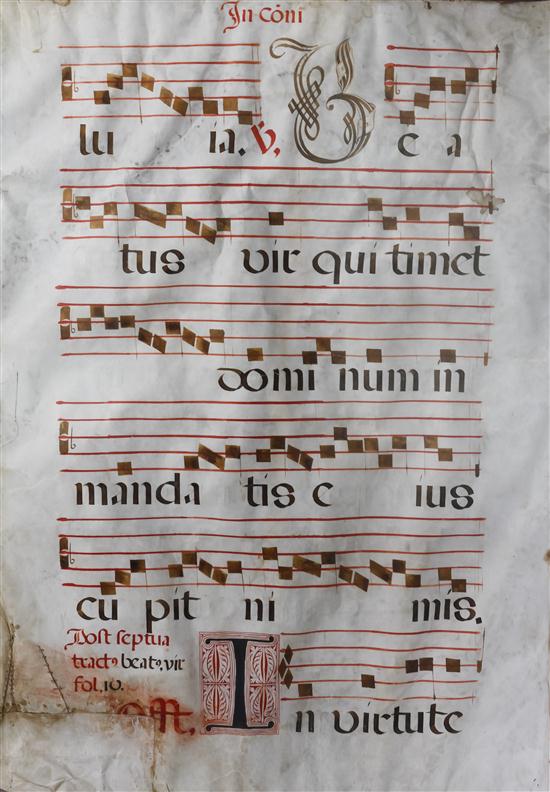 In cōni
lu ia. ℣. B e a
tus vir qui timet
domi num in
manda tis e ius
cu pit ni mis.
Post septua
tract⁹ beat⁹. vir
fol. 10.
Off. I n virtute